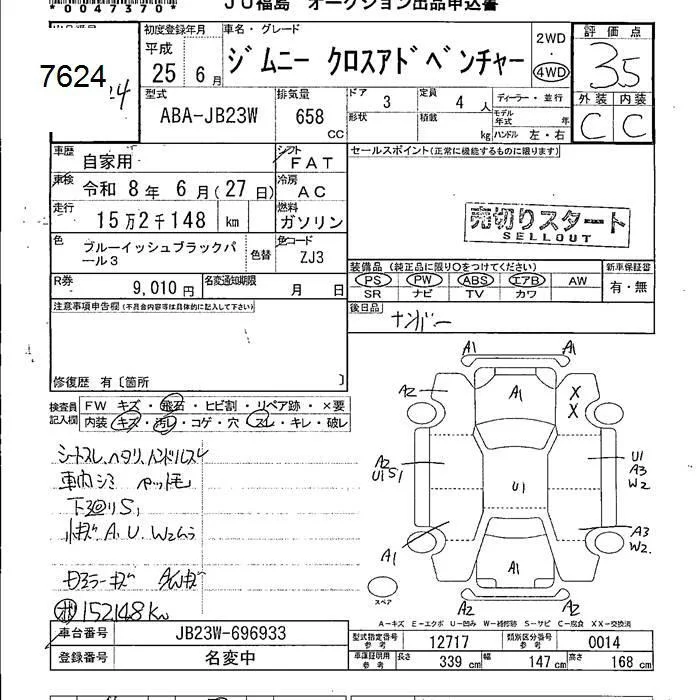 *0047370*
JU福島 オークション出品申込書
7624
初度登録年月
平成
25 6月
車名・グレード
ジムニー クロスアドベンチャー
2WD
・
4WD
評価点
3.5
外装 内装
C C
型式
ABA-JB23W
排気量
658
CC
ドア
3
形状
定員
4 人
積載
kg
ディーラー・並行
モデル年式 年
ハンドル 左・右
車歴
自家用
シフト
FAT
車検
令和 8年 6月(27日)
冷房
AC
走行
15万2千148 km
燃料
ガソリン
色
ブルーイッシュブラックパール3
色替
色コード
ZJ3
R券
9,010円
名変通知期限
月 日
セールスポイント(正常に機能するものに限ります)
売切りスタート
SELLOUT
装備品 (純正品に限り○をつけてください)
PS PW ABS エアB AW
SR ナビ TV カワ
新車保証書
有・無
後日品
ナンバー
注意事項申告欄(不具合内容等は具体的に記入して下さい)
修復歴 有〔箇所 〕
検査員記入欄
FW キズ・飛石・ヒビ割・リペア跡・×要
内装 キズ・汚レ・コゲ・穴・スレ・キレ・破レ
シートスレ、ヘタリ、ハンドルスレ
車内シミ ペット毛
下廻りS,
小キズ A. U. W2ムラ
A1 A1
A2 A1 X X
A2 U1 S1
U1
U1 A3 W2
A1 A1 A3 W2
A2 A2
スペア
A-キズ E-エクボ U-凹み W-補修跡 S-サビ C-腐食 XX-交換済
152148km
車台番号
JB23W-696933
登録番号
名変中
型式指定番号
参考
12717
類別区分番号
参考
0014
車庫証明用
参考
長さ 339 cm 幅 147 cm 高さ 168 cm